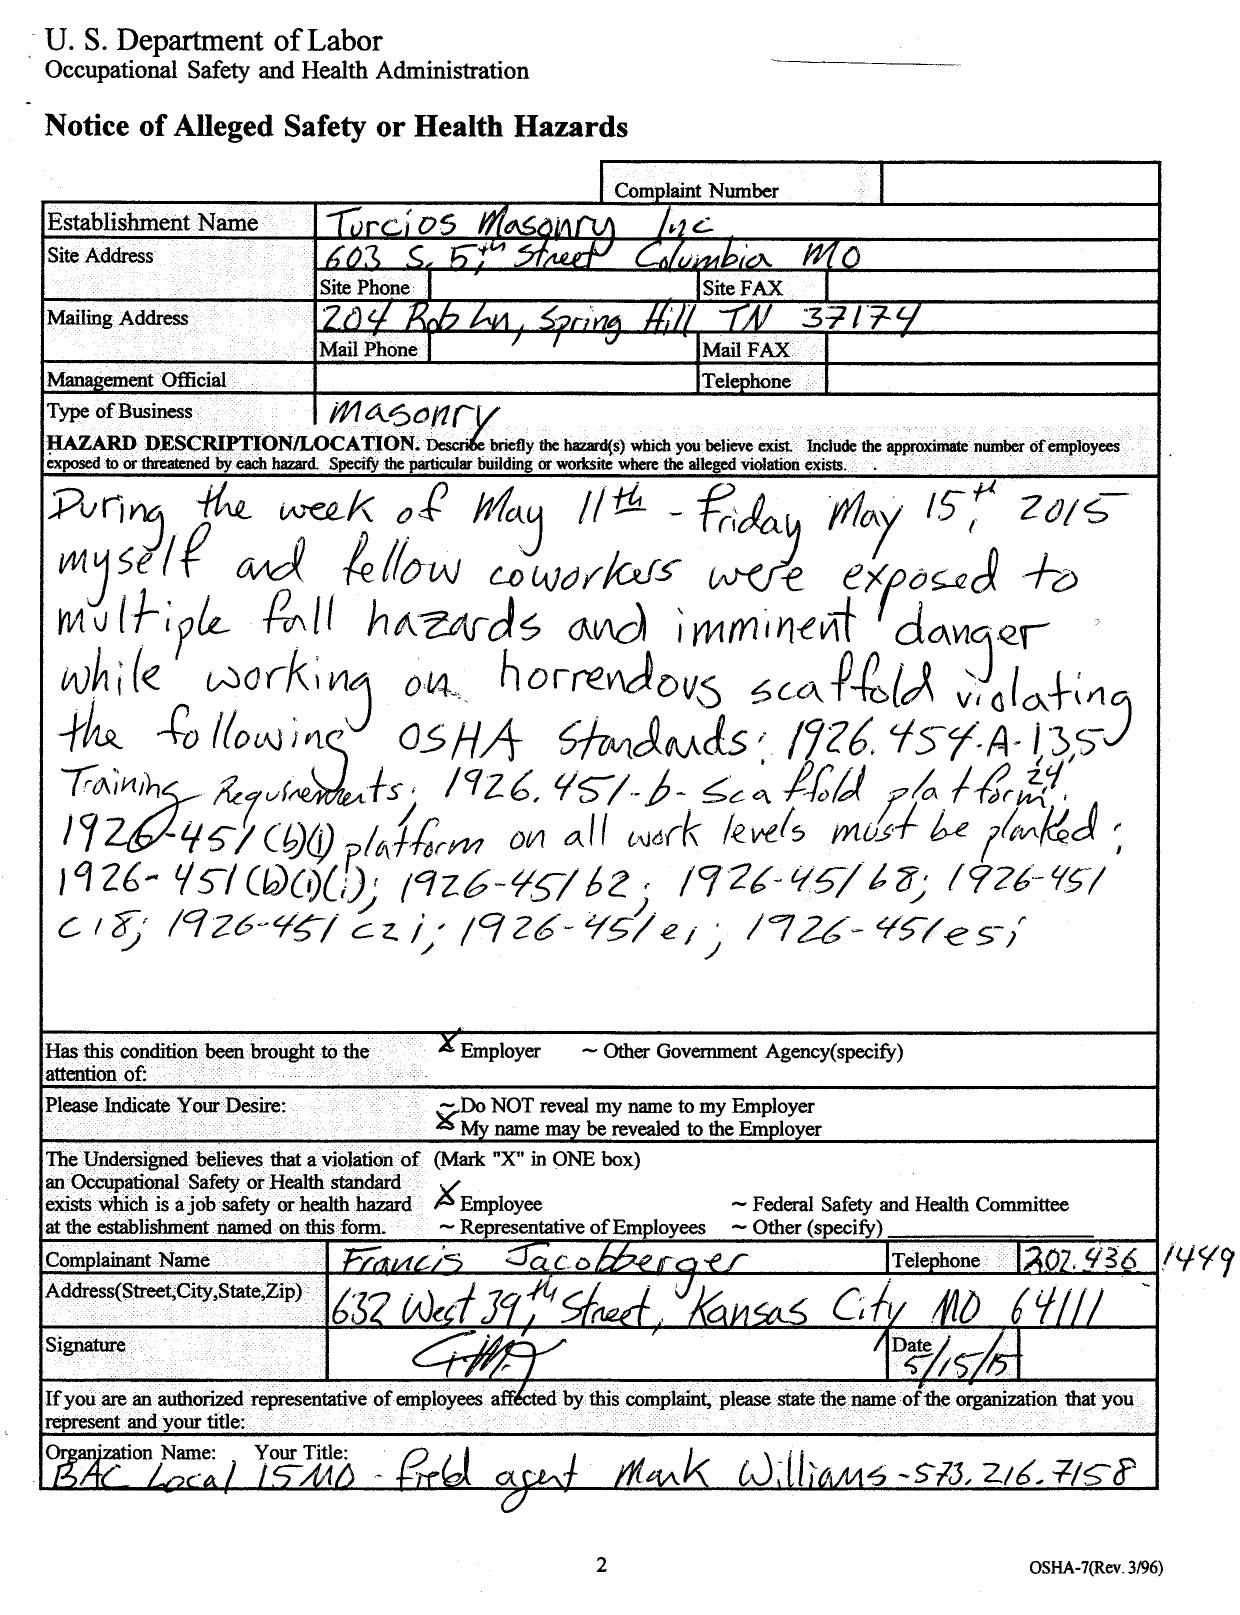 U. S. Department of Labor
Occupational Safety and Health Administration
Notice of Alleged Safety or Health Hazards
Complaint Number
Establishment Name Turcios Masonry Inc
Site Address 603 S. 5th Street Columbia MO
Site Phone Site FAX
Mailing Address 204 Rob Ln, Spring Hill TN 37174
Mail Phone Mail FAX
Management Official Telephone
Type of Business Masonry
HAZARD DESCRIPTION/LOCATION. Describe briefly the hazard(s) which you believe exist. Include the approximate number of employees
exposed to or threatened by each hazard. Specify the particular building or worksite where the alleged violation exists.
During the week of May 11th - Friday May 15th, 2015
myself and fellow coworkers were exposed to
multiple fall hazards and imminent danger
while working on horrendous scaffold violating
the following OSHA Standards: 1926.454-A-1,3,5
Training Requirements; 1926.451-b- Scaffold platform 24"
1926-451(b)(1) platform on all work levels must be planked;
1926-451(b)(1)(i); 1926-451 b2; 1926-451 b8; 1926-451
c18; 1926-451 c2i; 1926-451 e1; 1926-451 e5i
Has this condition been brought to the X Employer ~ Other Government Agency(specify)
attention of:
Please Indicate Your Desire: ~ Do NOT reveal my name to my Employer
X My name may be revealed to the Employer
The Undersigned believes that a violation of (Mark "X" in ONE box)
an Occupational Safety or Health standard
exists which is a job safety or health hazard X Employee ~ Federal Safety and Health Committee
at the establishment named on this form. ~ Representative of Employees ~ Other (specify)
Complainant Name Francis Jacobberger Telephone 202.436 1449
Address(Street,City,State,Zip) 632 West 39th Street, Kansas City MO 64111
Signature Date 5/15/15
If you are an authorized representative of employees affected by this complaint, please state the name of the organization that you
represent and your title:
Organization Name: Your Title:
BAC Local 15MO - Field agent Mark Williams - 573.216.7158
2 OSHA-7(Rev. 3/96)